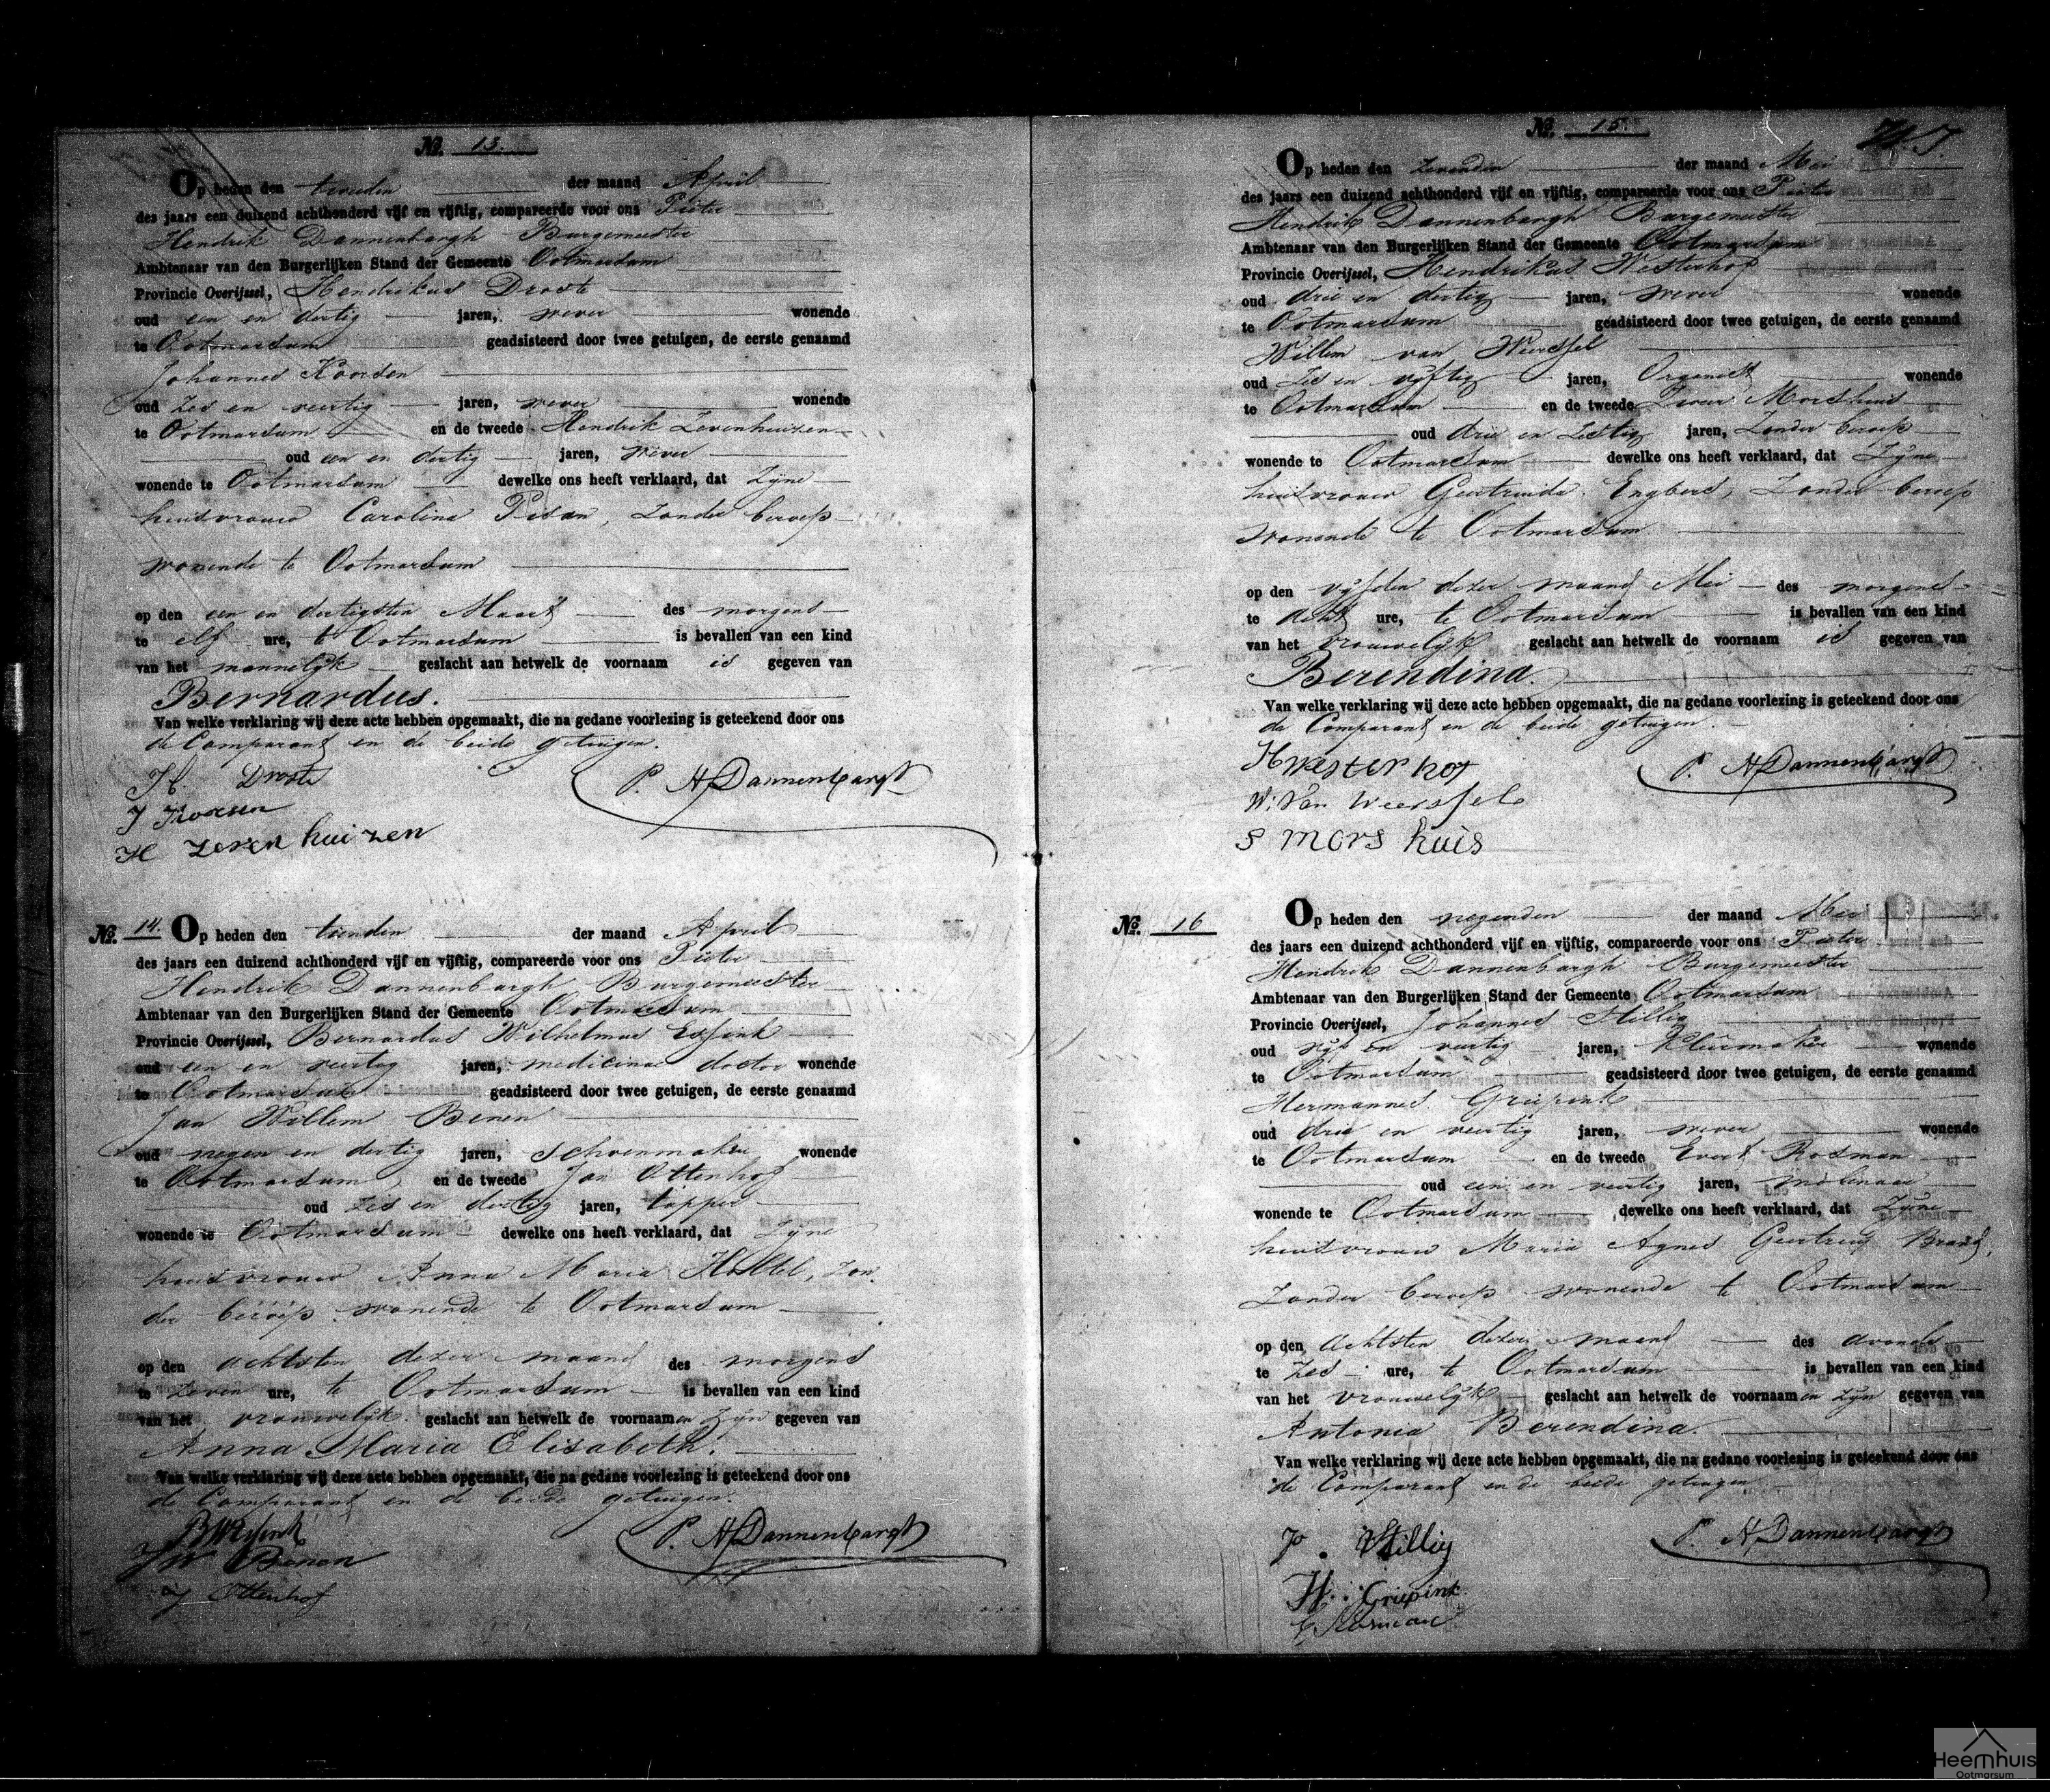 No. 13.
Op heden den tweeden der maand April
des jaars een duizend achthonderd vijf en vijftig, compareerde voor ons Pieter
Hendrik Dannenbargh Burgemeester
Ambtenaar van den Burgerlijken Stand der Gemeente Ootmarsum
Provincie Overijssel, Hendrikus Droste
oud een en dertig jaren, wever wonende
te Ootmarsum geadsisteerd door twee getuigen, de eerste genaamd
Johannes Koorsen
oud zes en veertig jaren, wever wonende
te Ootmarsum en de tweede Hendrik Zevenhuizen
oud een en dertig jaren, wever
wonende te Ootmarsum dewelke ons heeft verklaard, dat zyne
huisvrouw Carolina, zonder beroep
wonende te Ootmarsum
op den een en dertigsten Maart des morgens
te elf ure, te Ootmarsum is bevallen van een kind
van het mannelyk geslacht aan hetwelk de voornaam is gegeven van
Bernardus.
Van welke verklaring wij deze acte hebben opgemaakt, die na gedane voorlezing is geteekend door ons
de Comparant en de beide getuigen.
H. Droste
P. H Dannenbargh
J Koorsen
H Zevenhuizen
No. 14. Op heden den tienden der maand April
des jaars een duizend achthonderd vijf en vijftig, compareerde voor ons Pieter
Hendrik Dannenbargh Burgemeester
Ambtenaar van den Burgerlijken Stand der Gemeente Ootmarsum
Provincie Overijssel, Bernardus Wilhelmus Essink
oud een en veertig jaren, medicinae doctor wonende
te Ootmarsum geadsisteerd door twee getuigen, de eerste genaamd
Jan Willem Benen
oud negen en dertig jaren, schoenmaker wonende
te Ootmarsum, en de tweede Jan Ottenhof
oud zes en dertig jaren, tapper
wonende te Ootmarsum dewelke ons heeft verklaard, dat zyne
huisvrouw Anna Maria, zon
der beroep wonende te Ootmarsum
op den achtsten dezer maand des morgens
te zeven ure, te Ootmarsum is bevallen van een kind
van het vrouwelyk geslacht aan hetwelk de voornaamen zyn gegeven van
Anna Maria Elisabeth.
Van welke verklaring wij deze acte hebben opgemaakt, die na gedane voorlezing is geteekend door ons
de Comparant en de beide getuigen.
BWEssink
P. H Dannenbargh
JW Benen
J Ottenhof
No. 15.
Op heden den zevenden der maand Mei
des jaars een duizend achthonderd vijf en vijftig, compareerde voor ons Pieter
Hendrik Dannenbargh Burgemeester
Ambtenaar van den Burgerlijken Stand der Gemeente Ootmarsum
Provincie Overijssel, Hendrikus Westerhof
oud drie en dertig jaren, wever wonende
te Ootmarsum geadsisteerd door twee getuigen, de eerste genaamd
Willem van Weersfel
oud zes en vyftig jaren, Organist wonende
te Ootmarsum en de tweede Morshuis
oud drie en zestig jaren, zonder beroep
wonende te Ootmarsum dewelke ons heeft verklaard, dat zyne
huisvrouw Geertruida Engbers, zonder beroep
wonende te Ootmarsum
op den vyfden dezer maand Mei des morgens
te acht ure, te Ootmarsum is bevallen van een kind
van het vrouwelyk geslacht aan hetwelk de voornaam is gegeven van
Berendina.
Van welke verklaring wij deze acte hebben opgemaakt, die na gedane voorlezing is geteekend door ons
de Comparant en de beide getuigen.
H Westerhof
P. H Dannenbargh
W: Van Weersfel
S Morshuis
No. 16 Op heden den negenden der maand Mei
des jaars een duizend achthonderd vijf en vijftig, compareerde voor ons Pieter
Hendrik Dannenbargh Burgemeester
Ambtenaar van den Burgerlijken Stand der Gemeente Ootmarsum
Provincie Overijssel, Johannes Stillig
oud vyf en veertig jaren, Kleermaker wonende
te Ootmarsum geadsisteerd door twee getuigen, de eerste genaamd
Hermannus Griepink
oud drie en veertig jaren, wever wonende
te Ootmarsum en de tweede Evert Rosman
oud een en veertig jaren, molenaar
wonende te Ootmarsum dewelke ons heeft verklaard, dat zyne
huisvrouw Maria Agnes Geertruy Brand,
zonder beroep wonende te Ootmarsum
op den achtsten dezer maand des avonds
te zes ure, te Ootmarsum is bevallen van een kind
van het vrouwelyk geslacht aan hetwelk de voornaamen zyn gegeven van
Antonia Berendina.
Van welke verklaring wij deze acte hebben opgemaakt, die na gedane voorlezing is geteekend door ons
de Comparant en de beide getuigen
J. Stillig
P. H Dannenbargh
H. Griepink
E Rosman
Heemhuis
Ootmarsum